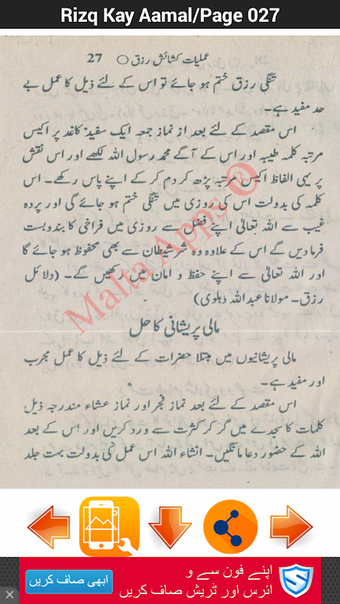 Rizq Kay Aamal/Page 027
عملیات کشائش رزق ○ 27
تنگی رزق ختم ہو جائے تو اس کے لئے ذیل کا عمل بے
حد مفید ہے۔
اس مقصد کے لئے بعد از نماز جمعہ ایک سفید کاغذ پر اکیس
مرتبہ کلمہ طیبہ اور اس کے آگے محمد رسول اللہ لکھے اور اس نقش
پر یہی الفاظ اکیس مرتبہ پڑھ کر دم کر کے اپنے پاس رکھے۔ اس
کلمہ کی بدولت اس کی روزی میں تنگی ختم ہو جائے گی اور پردہ
غیب سے اللہ تعالیٰ اپنے فضل سے روزی میں فراخی کا بندوبست
فرما دیں گے اس کے علاوہ وہ شر شیطان سے بھی محفوظ ہو جائے گا
اور اللہ تعالیٰ سے اپنے حفظ و امان میں رکھیں گے۔ (دلائل
رزق۔ مولانا عبداللہ دہلوی)
مالی پریشانی کا حل
مالی پریشانیوں میں مبتلا حضرات کے لئے ذیل کا عمل مجرب
اور مفید ہے۔
اس مقصد کے لئے بعد نماز فجر اور نماز عشاء مندرجہ ذیل
کلمات کا سجدے میں گر کر کثرت سے ورد کریں اور اس کے بعد
اللہ کے حضور دعا مانگیں۔ انشاء اللہ اس عمل کی بدولت بہت جلد
Malta Apps ®
اپنے فون سے و
ائرس اور ٹریش صاف کریں
ابھی صاف کریں